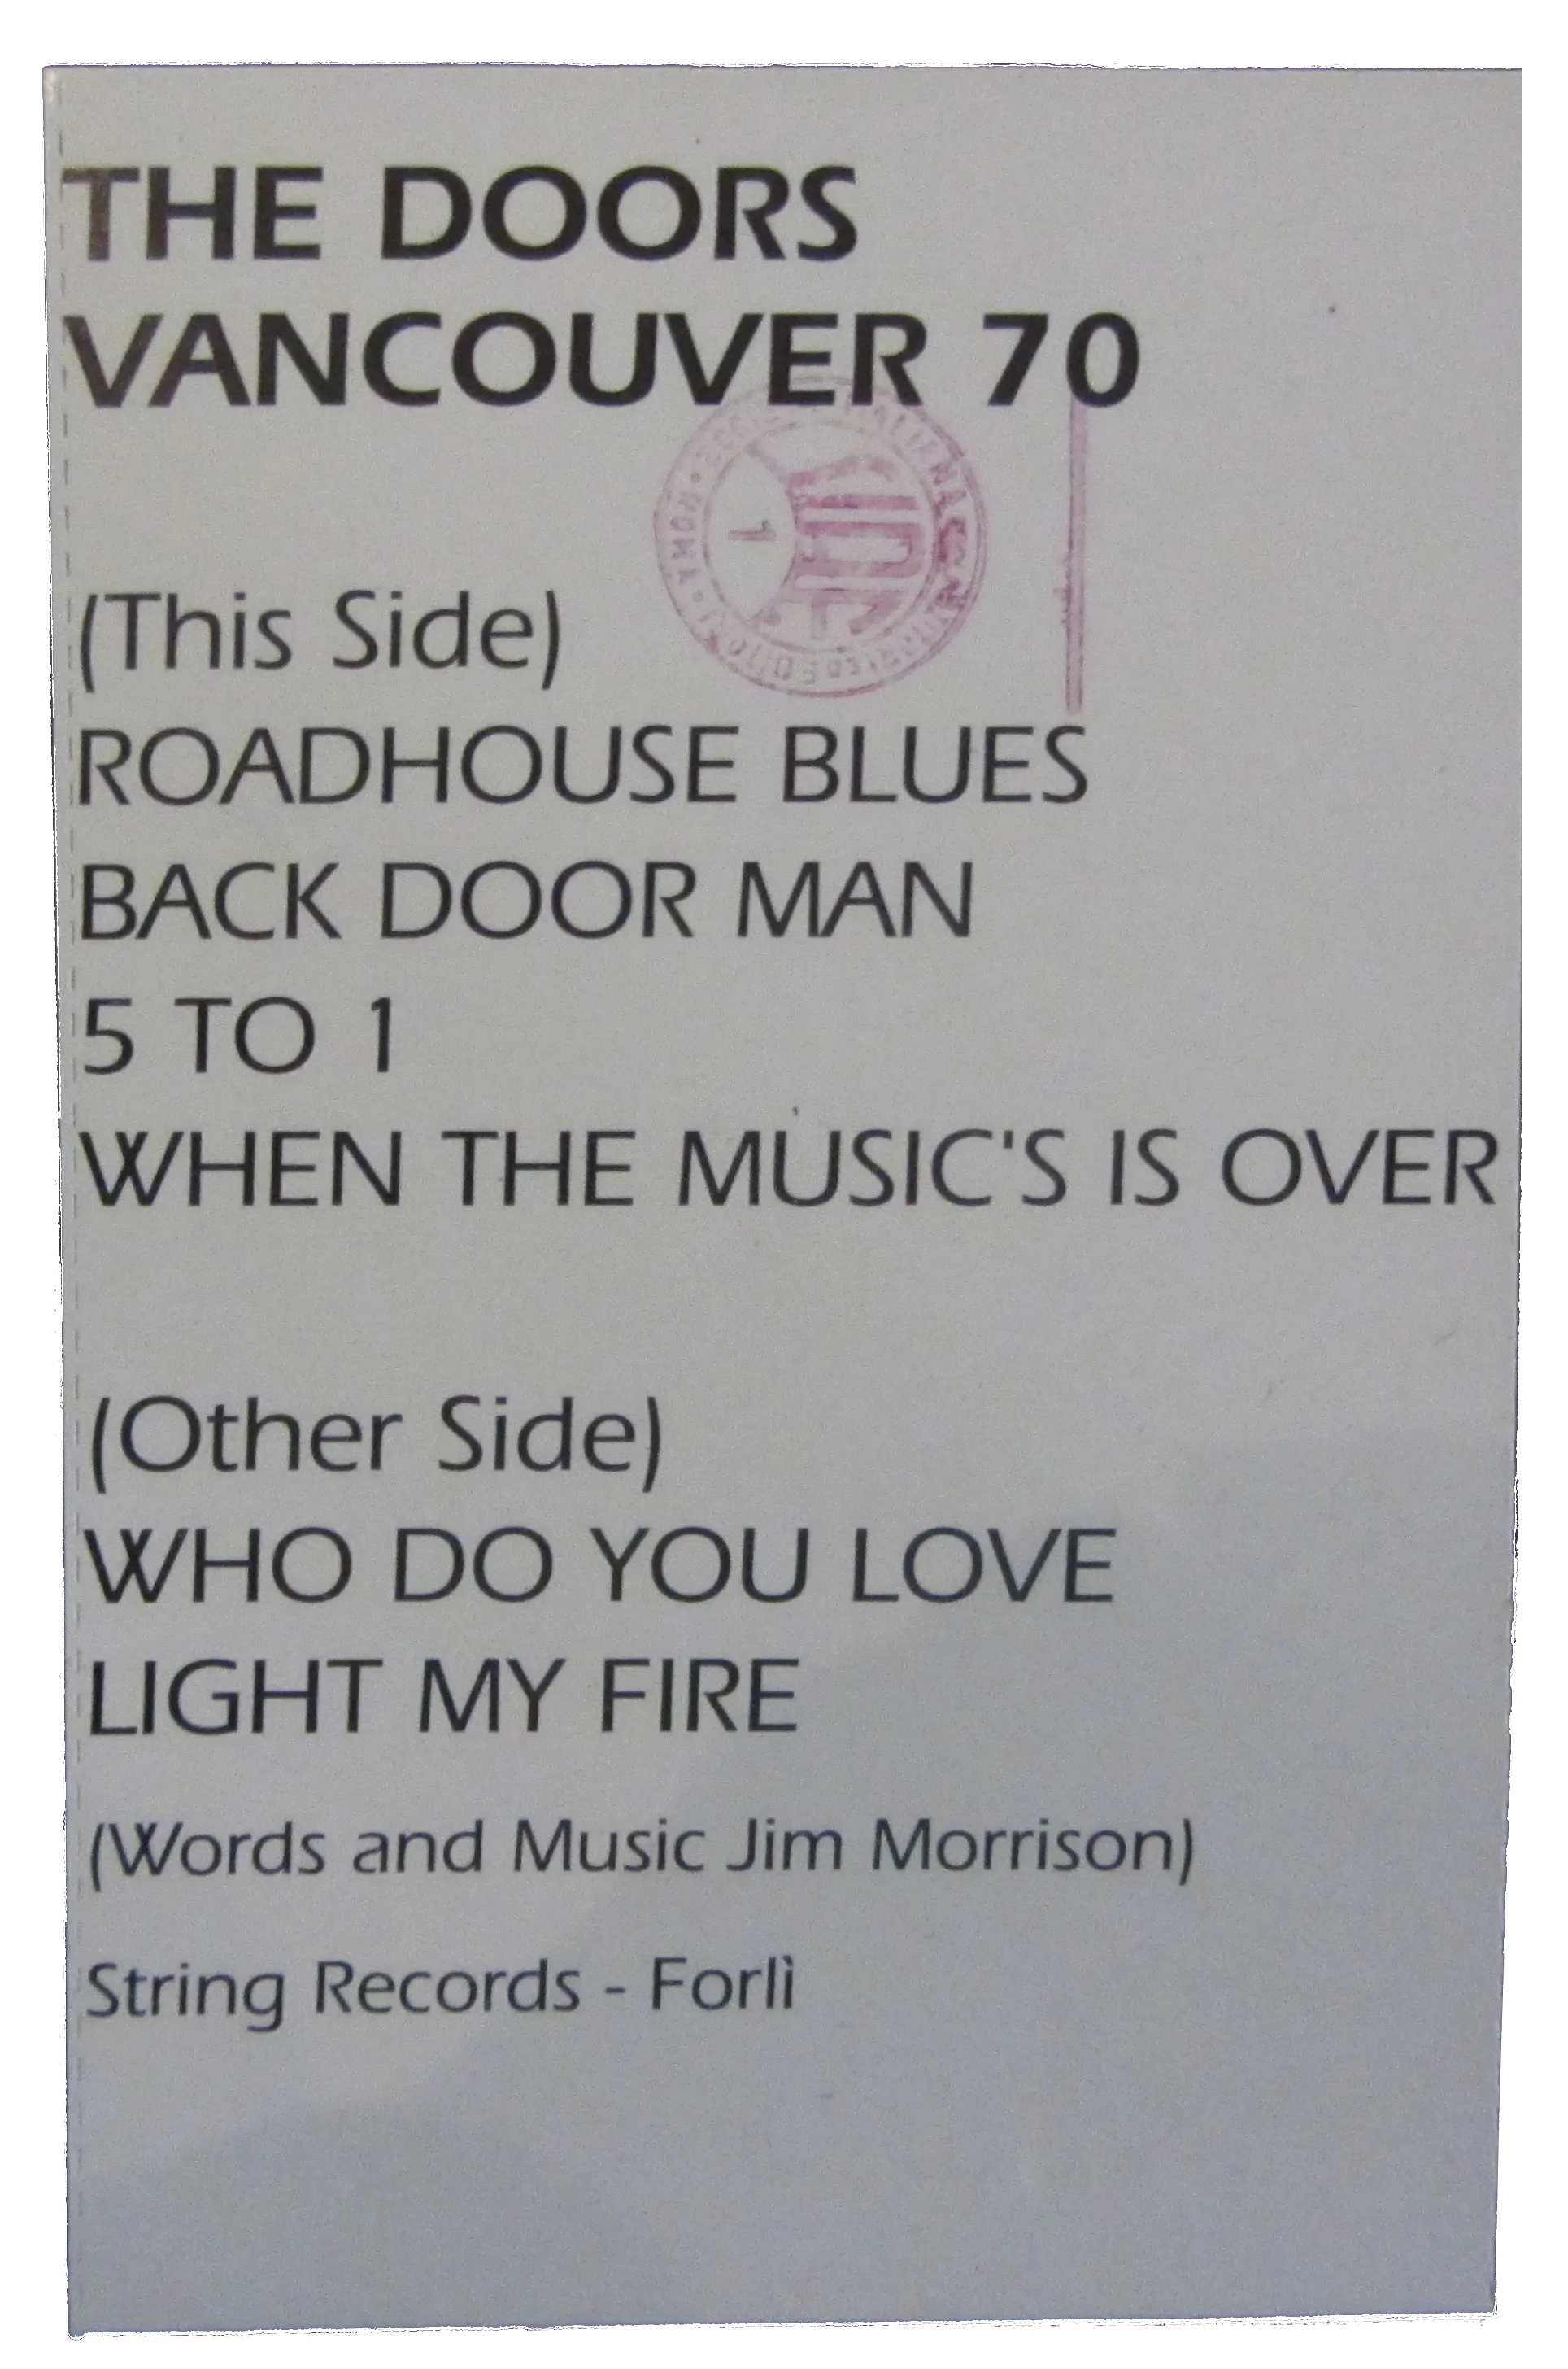 THE DOORS
VANCOUVER 70
(This Side)
ROADHOUSE BLUES
BACK DOOR MAN
5 TO 1
WHEN THE MUSIC'S IS OVER
(Other Side)
WHO DO YOU LOVE
LIGHT MY FIRE
(Words and Music Jim Morrison)
String Records - Forlì
ROMA